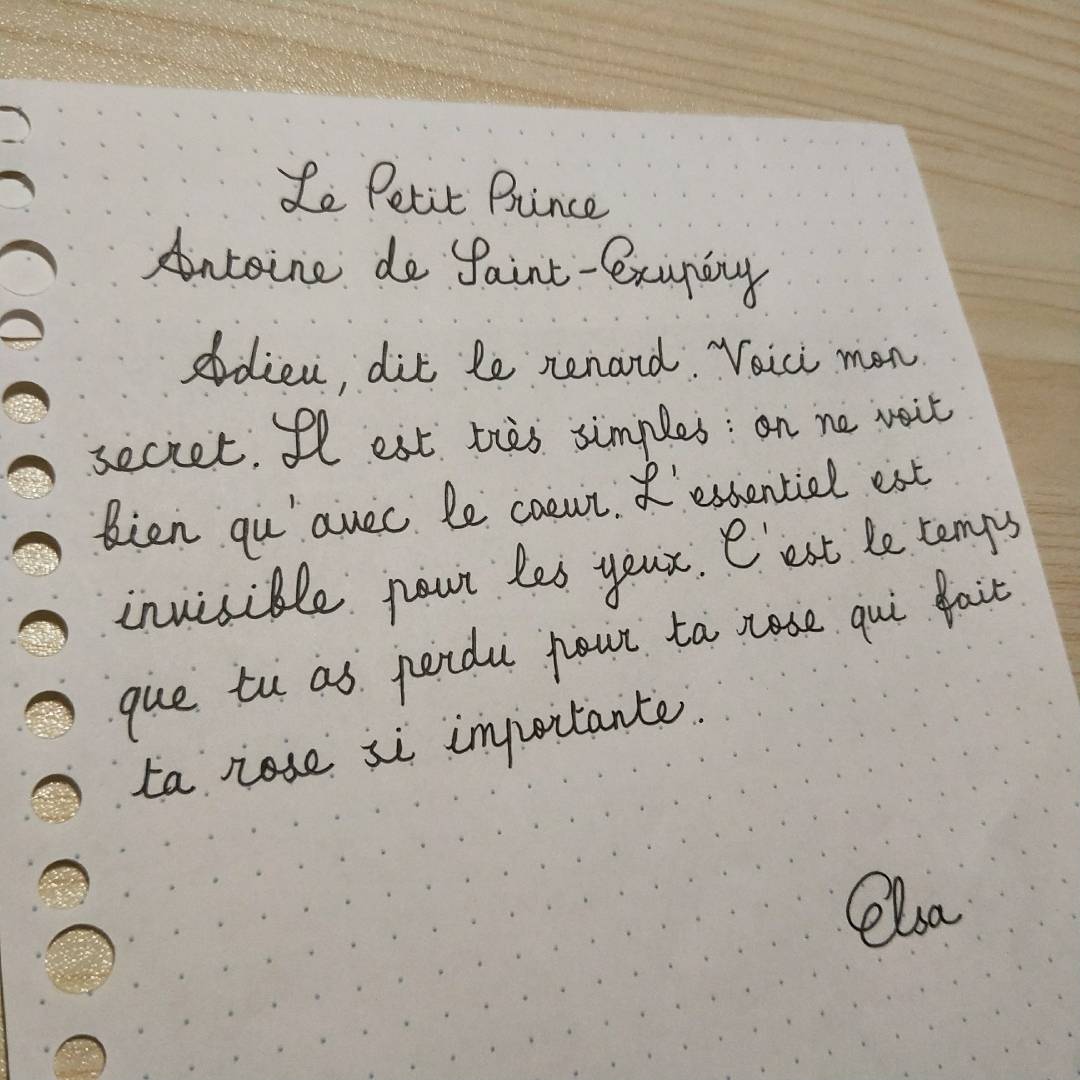 Le Petit Prince
Antoine de Saint-Exupéry
Adieu, dit le renard. Voici mon
secret. Il est très simples : on ne voit
bien qu'avec le coeur. L'essentiel est
invisible pour les yeux. C'est le temps
que tu as perdu pour ta rose qui fait
ta rose si importante.
Elsa